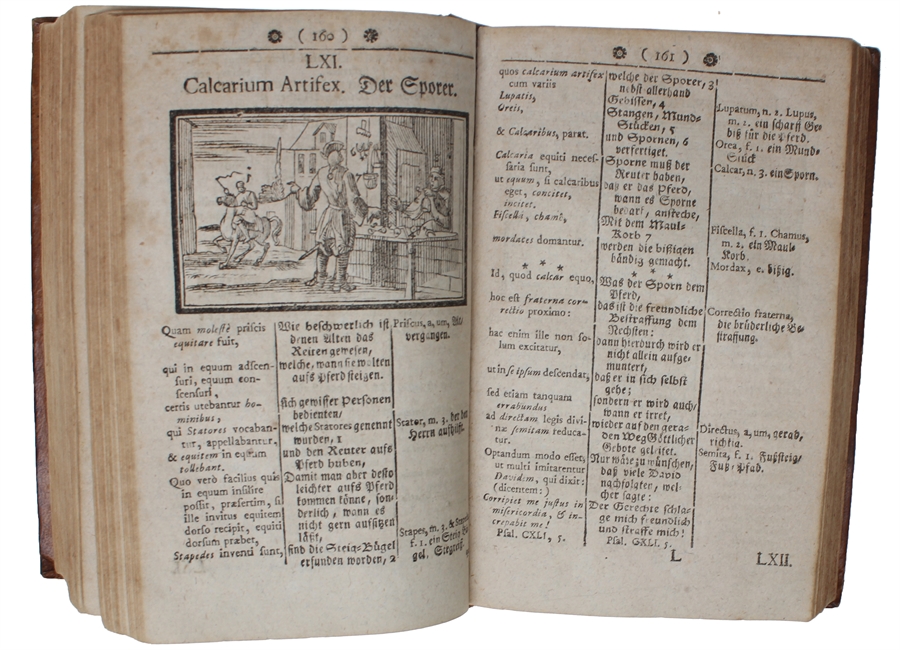 ( 160 )
LXI.
Calcarium Artifex. Der Sporer.
Quam molestè priscis
equitare fuit,
qui in equum adscen-
suri, equum con-
scensuri,
certis utebantur ho-
minibus,
qui Statores vocaban-
tur, appellabantur,
& equitem in equum
tollebant.
Quo verò facilius quis
in equum insilire
possit, præsertim, si
ille invitus equitem
dorso recipit, equiti
dorsum præbet,
Stapedes inventi sunt,
Wie beschwerlich ist
denen Alten das
Reiten gewesen,
welche, wann sie wolten
aufs Pferd steigen.
sich gewisser Personen
bedienten,
welche Statores genennt
wurden, 1
und den Reuter aufs
Pferd huben,
Damit man aber desto
leichter aufs Pferd
kommen könne, son-
derlich, wann es
nicht gern aufsitzen
läßt,
sind die Steig-Bügel
erfunden worden, 2
Priscus, a, um, Alt,
vergangen.
Stator, m. 3. der dem
Herrn aufhilfft.
Stapes, m. 3. & Stapeda
f. 1. ein Steig-Bü-
gel, Stegreif.
( 161 )
quos calcarium artifex
cum variis
Lupatis,
Oreis,
& Calcaribus, parat.
Calcaria equiti neces-
saria sunt,
ut equum, si calcaribus
eget, concitet,
incitet.
Fiscellâ, chamô,
mordaces domantur.
* * *
Id, quod calcar equo,
hoc est fraterna cor-
rectio proximo:
hac enim ille non so-
lum excitatur,
ut in se ipsum descendat,
sed etiam tanquam
errabundus
ad directam legis divi-
næ semitam reduca-
tur.
Optandum modo esset,
ut multi imitarentur
Davidem, qui dixit:
(dicentem:)
Corripiet me justus in
misericordia, & in-
crepabit me!
Psal. CXLI, 5.
welche der Sporer, 3
nebst allerhand
Gebissen, 4
Stangen, Mund-
Stücken, 5
und Spornen, 6
verfertiget.
Sporne muß der
Reuter haben,
daß er das Pferd,
wann es Sporne
bedarf, ansteche,
Mit dem Maul-
Korb 7
werden die bißigen
bändig gemacht.
* * *
Was der Sporn dem
Pferd,
das ist die freundliche
Bestraffung dem
Nechsten:
dann hierdurch wird er
nicht allein aufge-
muntert,
daß er in sich selbst
gehe;
sondern er wird auch,
wann er irret,
wieder auf den gera-
den Weg Göttlicher
Gebote geleitet.
Nur wäre zu wünschen,
daß viele David
nachfolgten, wel-
cher sagte:
Der Gerechte schla-
ge mich freundlich
und straffe mich!
Psal. CXLI, 5.
Lupatum, n. 2. Lupus,
m. 2. ein scharff Ge-
biß für die Pferd.
Orea, f. 1. ein Mund-
Stück
Calcar, n. 3. ein Sporn.
Fiscella, f. 1. Chamus,
m. 2. ein Maul-
Korb.
Mordax, e. bißig.
Correctio fraterna,
die brüderliche Be-
straffung.
Directus, a, um, gerad,
richtig.
Semita, f. 1. Fußsteig,
Fuß-Pfad.
L
LXII.